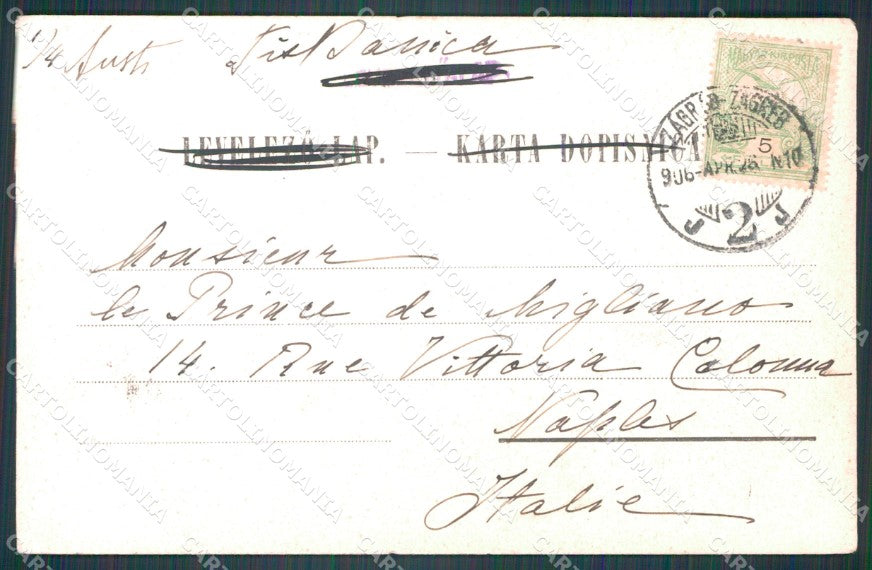 Tiskanica
LEVELEZŐ-LAP. — KARTA DOPISNICA
MAGYAR KIR. POSTA
5
ZÁGRÁB-ZAGREB
906-APR. 26. N10
2
Monsieur
le Prince de Migliano
14. Rue Vittoria Colonna
Naples
Italie
CARTOLINOMANIA